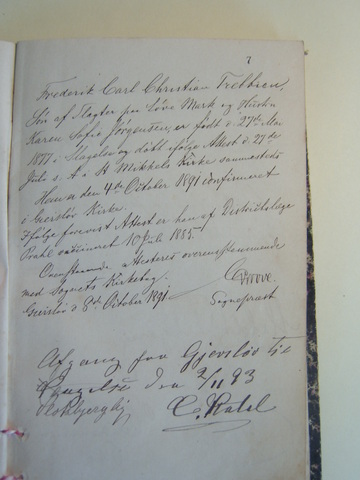 7
Frederik Carl Christian Trebbien,
Søn af Slagter paa Løve Mark og Hustru
Karen Sofie Jørgensen, er født d. 27de Mai
1877 i Slagelse og døbt ifølge Attest d. 27de
Juli s. A. i St Mikkels Kirke sammesteds
Han er den 4de October 1891 confirmeret
i Gierslöv Kirke.
Ifølge forevist Attest er han af Districtslæge
Prahl vaccineret 10 Juli 1885.
Ovenstaaende attesteres overensstemmende
med Sognets Kirkebog.
Gierslöv d 8de October 1891
Sognepræst
Afgang fra Gjerslöv til
den 2/11 93